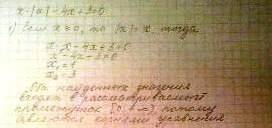 x·|x|-4x+3=0
1) Если x≥0, то |x|=x тогда
x·x-4x+3=0
x²-4x+3=0
x₁=1
x₂=3
Оба найденных значения
входят в рассматриваемый
промежуток [0;+∞) потому
являются корнями уравнения